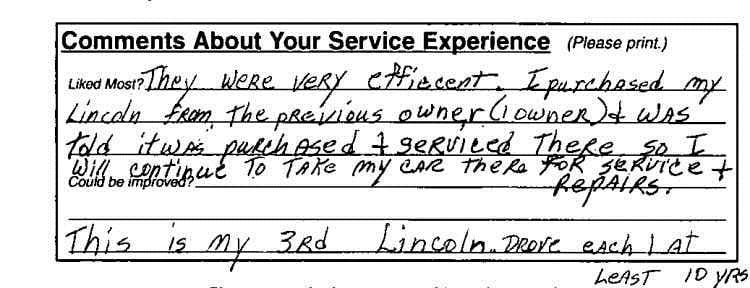 Comments About Your Service Experience (Please print.)
Liked Most? They were very effiecent. I purchased my
Lincoln from the previous owner (1 owner) & was
told it was purchased & serviced there so I
will continue to take my car there for service &
Could be improved? repairs.
This is my 3rd Lincoln. Drove each 1 at
least 10 yrs